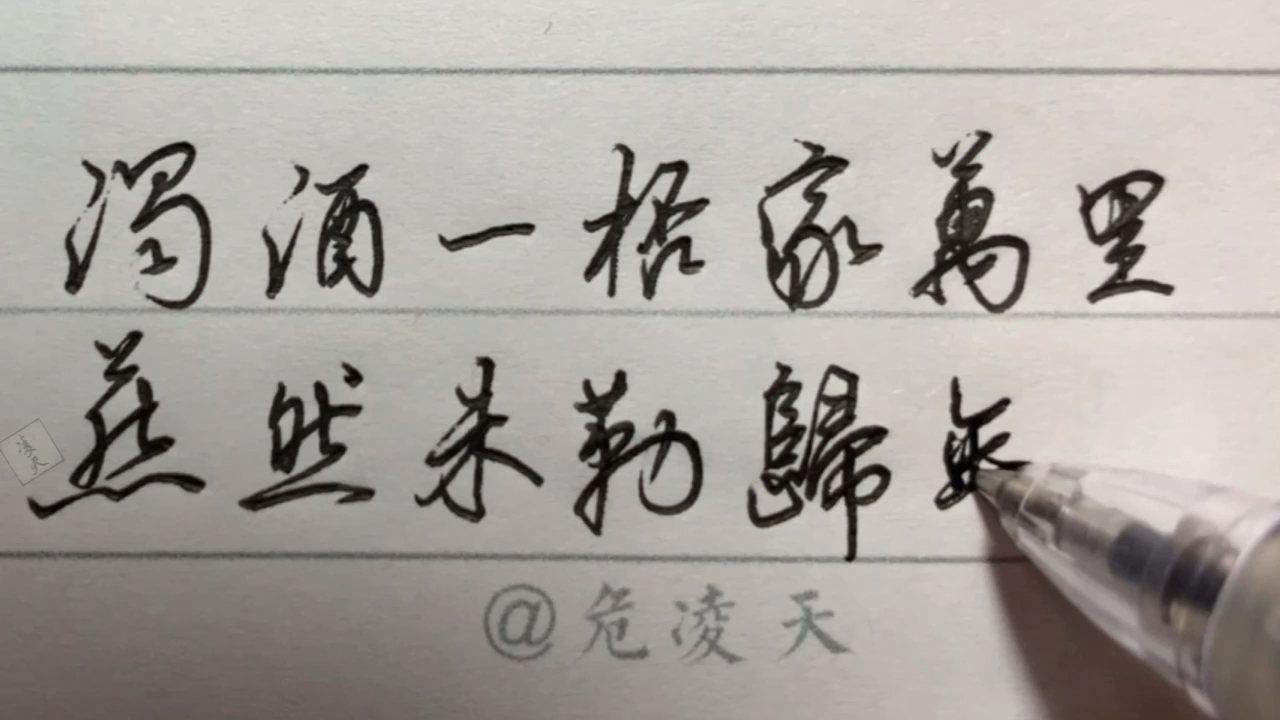 濁酒一桮家萬里
燕然未勒歸無
凌天
@危凌天